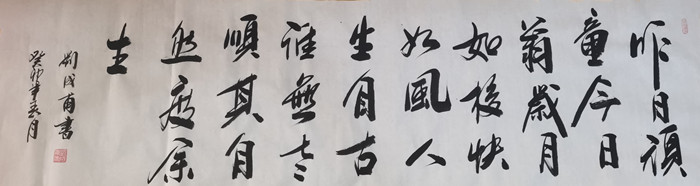 昨日頑
童今日
翁歲月
如梭快
如風人
生自古
誰無老
順其自
然度余
生
劉甫書
癸卯年月